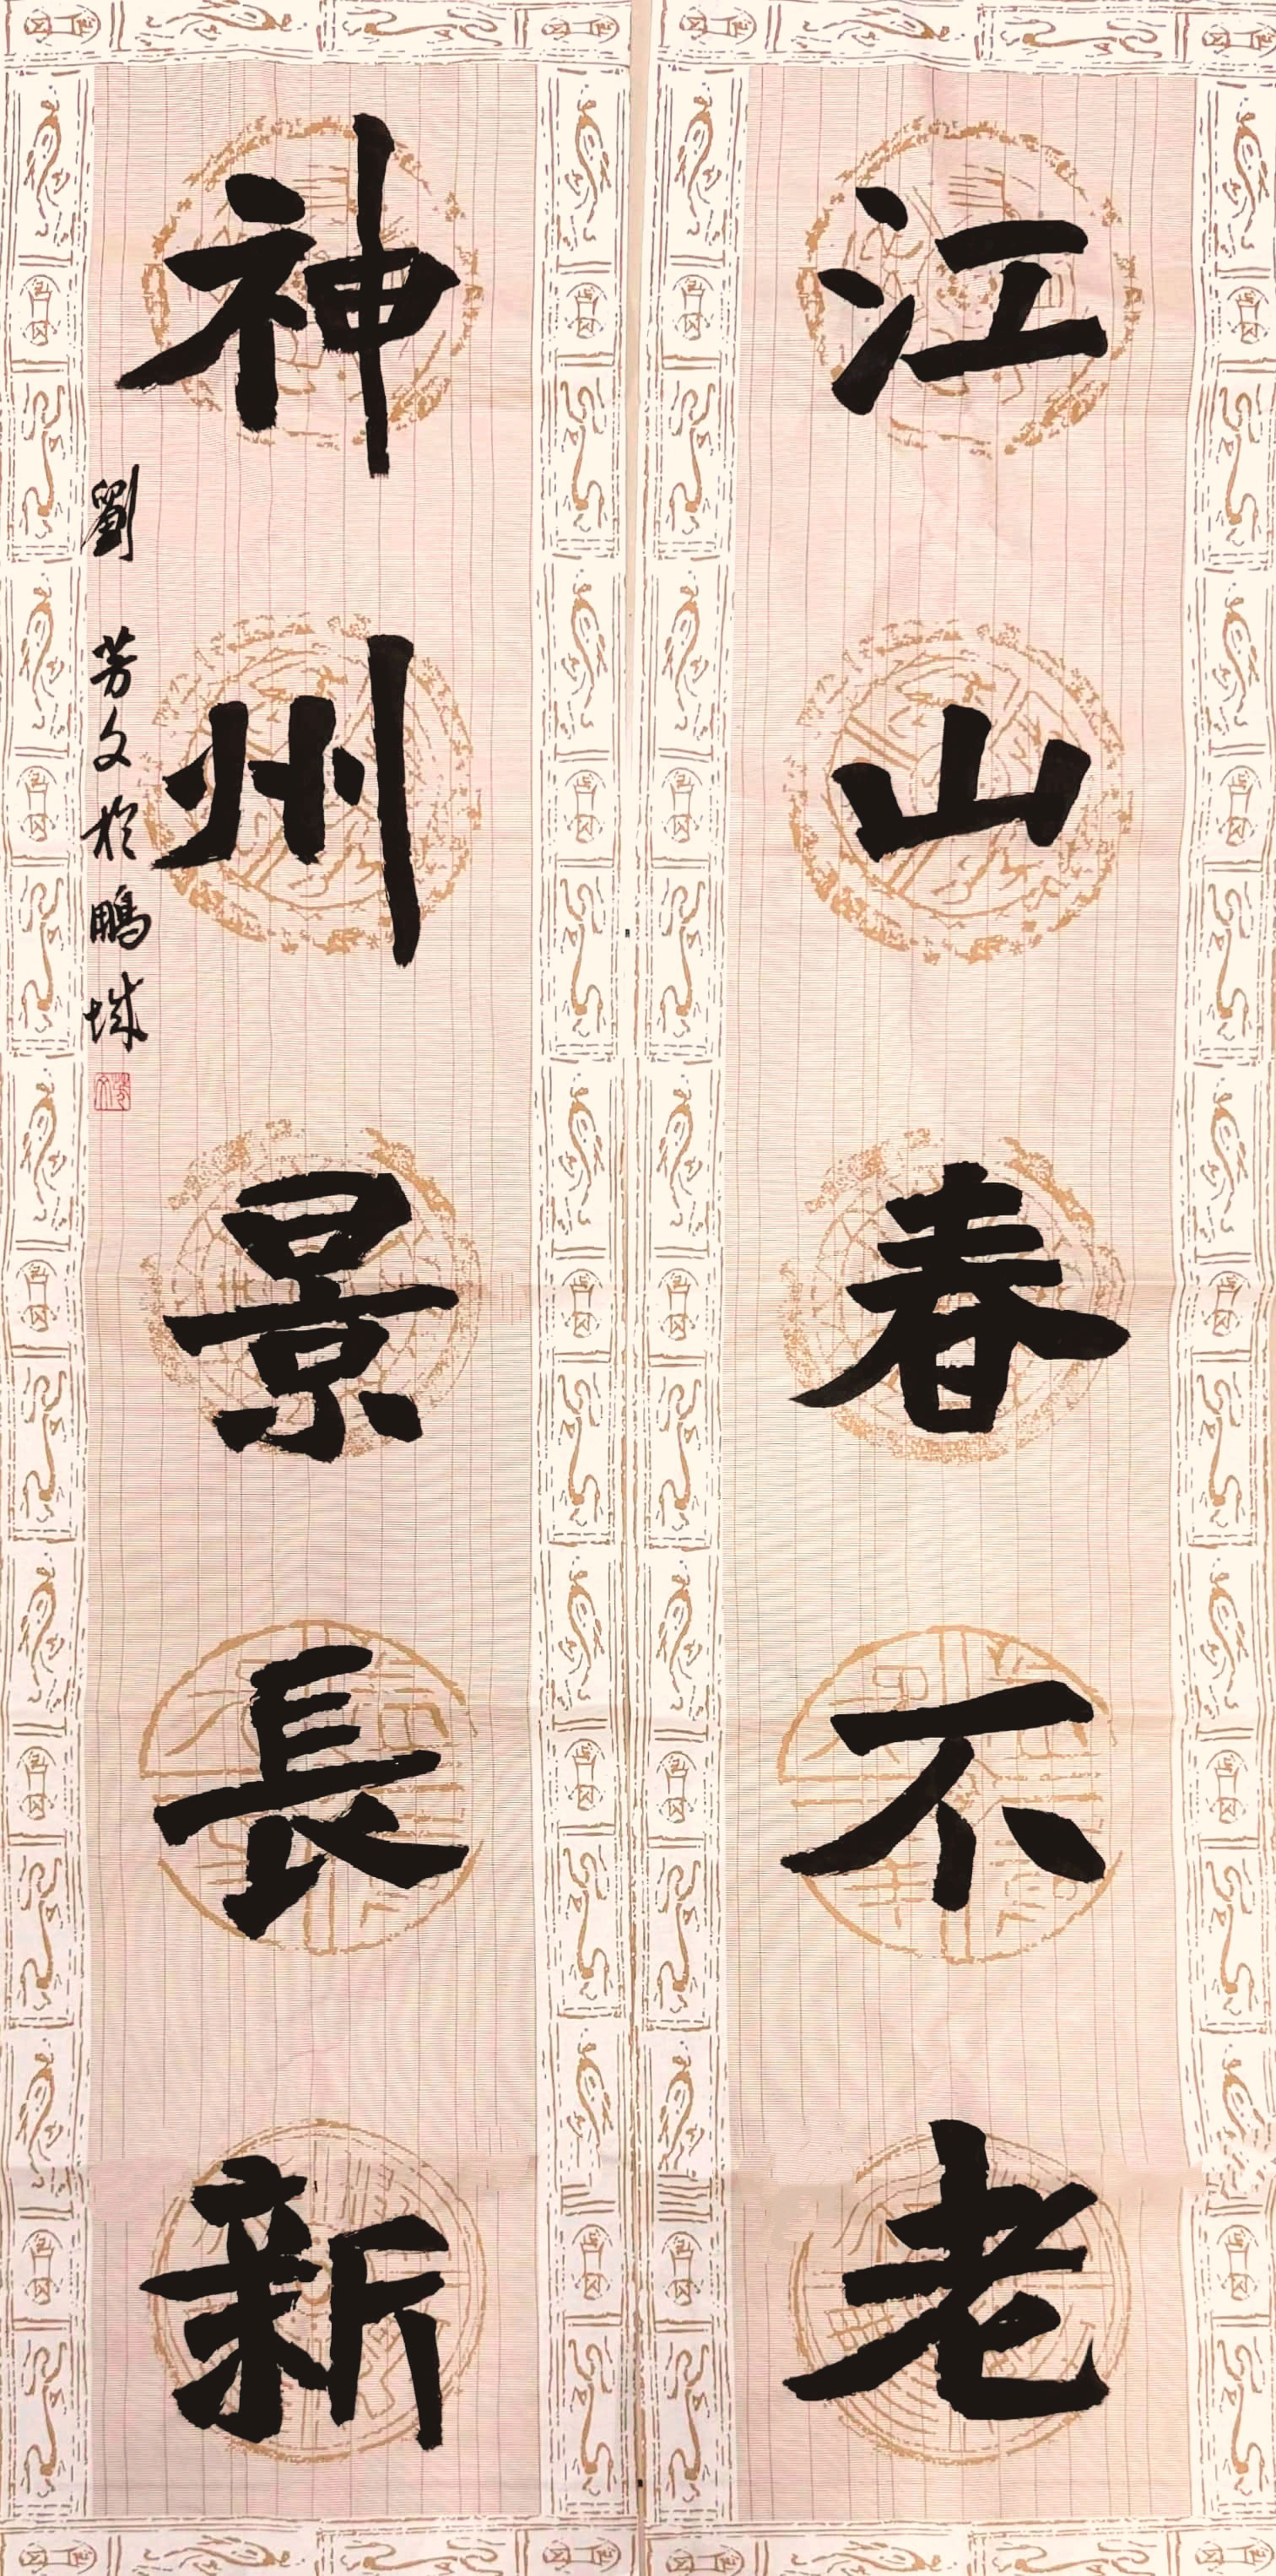 江山春不老
神州景長新
劉芳文於鵬城
芳文